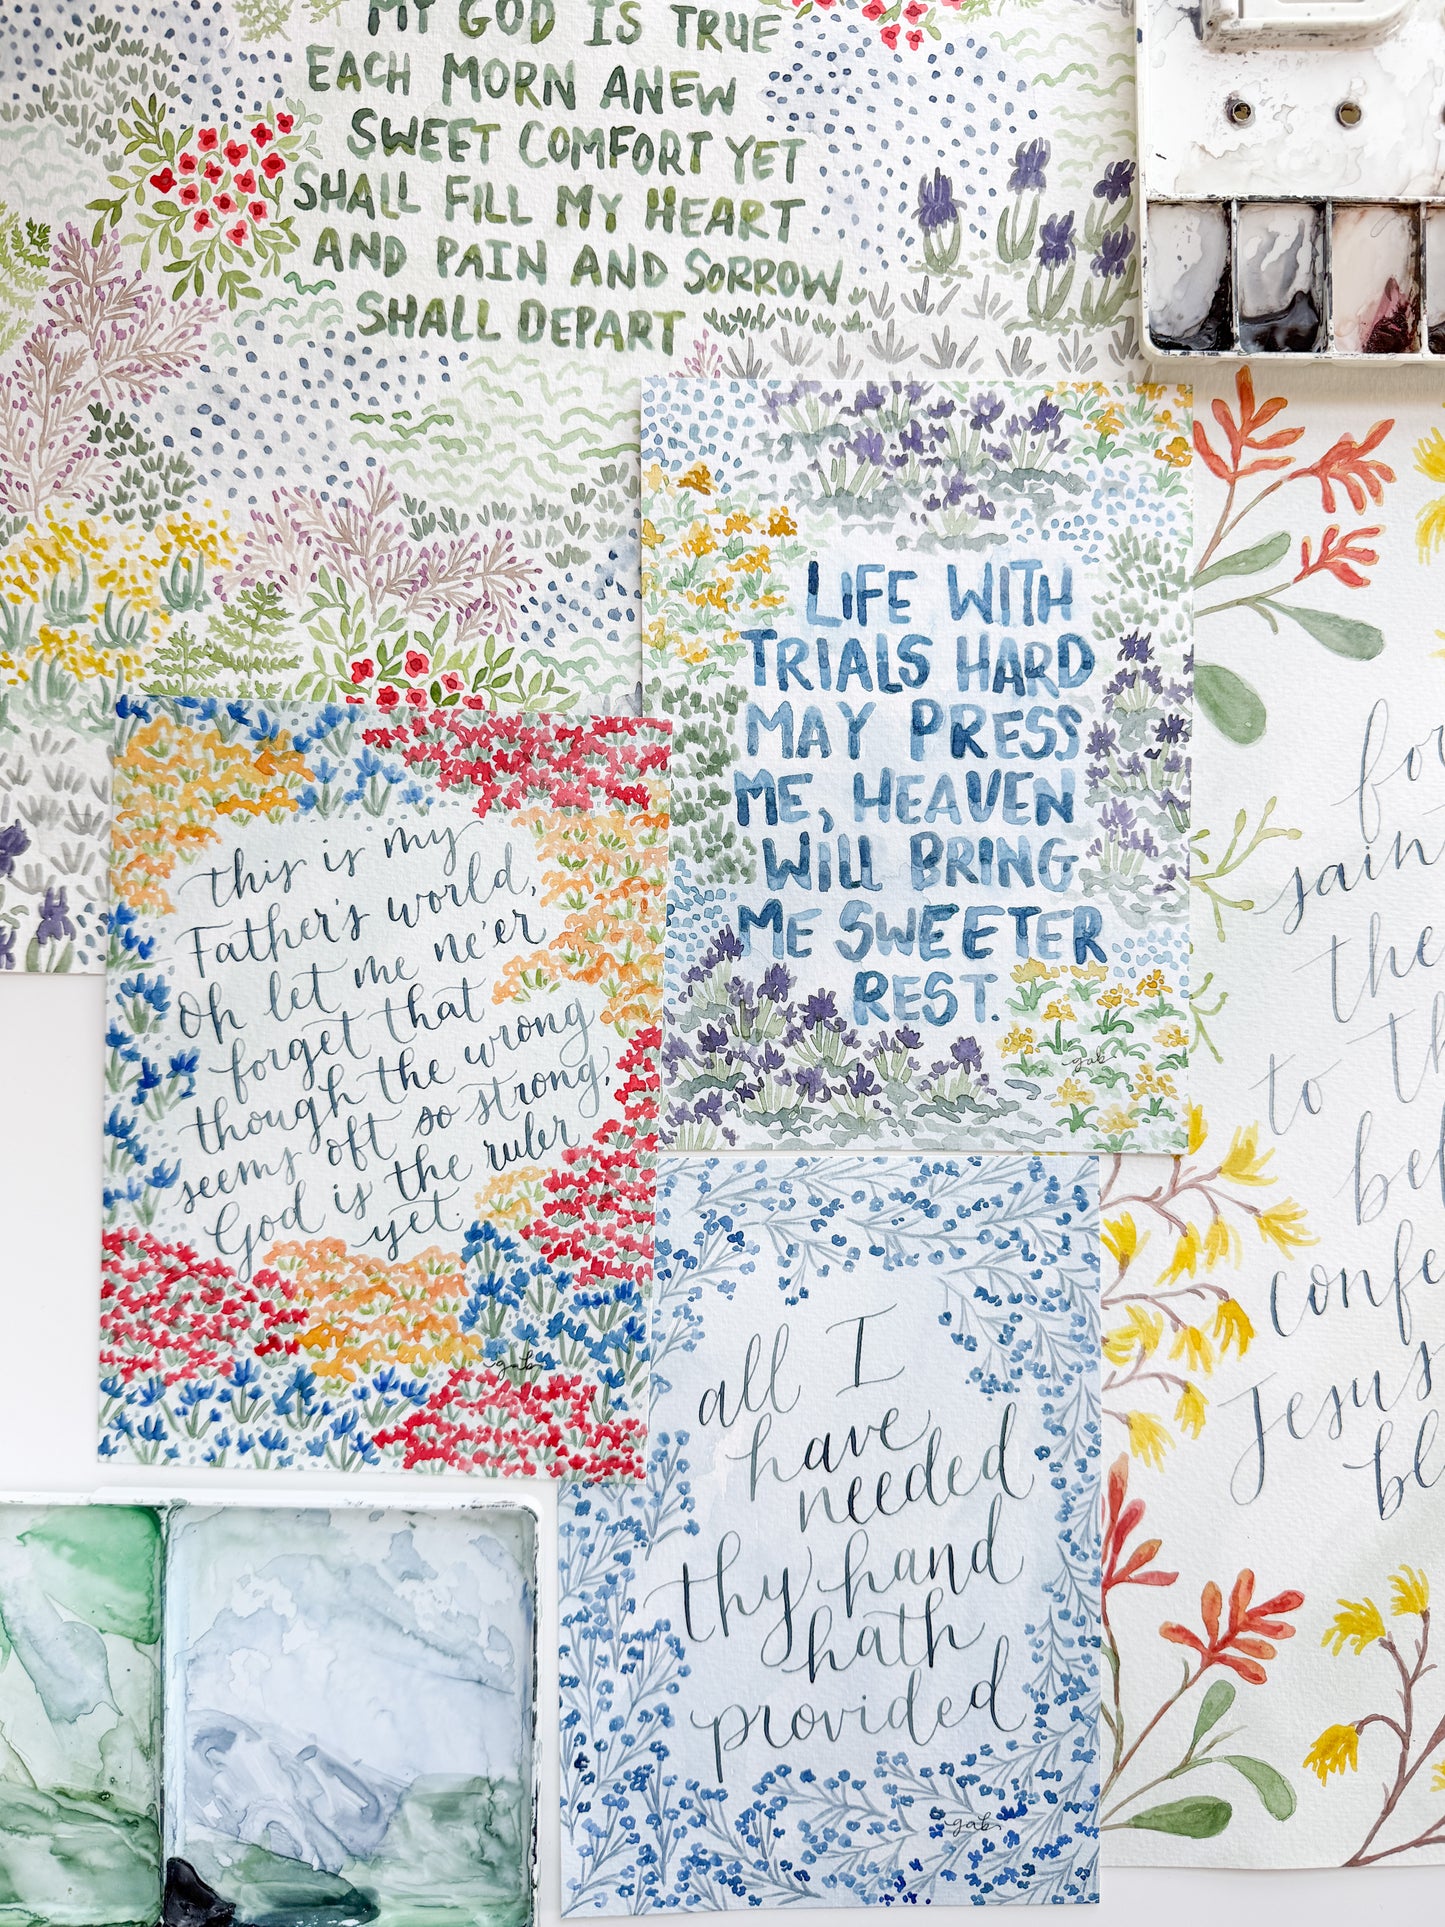 MY GOD IS TRUE
EACH MORN ANEW
SWEET COMFORT YET
SHALL FILL MY HEART
AND PAIN AND SORROW
SHALL DEPART
LIFE WITH
TRIALS HARD
MAY PRESS
ME, HEAVEN
WILL BRING
ME SWEETER
REST.
gab
this is my
Father's world,
Oh let me ne'er
forget that
though the wrong
seems oft so strong,
God is the ruler
yet.
gab
all I
have
needed
thy hand
hath
provided
gab
for
the
to
Jesus